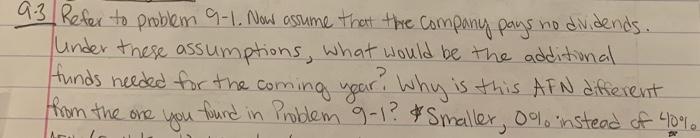 9-3 Refer to problem 9-1. Now assume that the company pays no dividends.
Under these assumptions, what would be the additional
funds needed for the coming year? Why is this AFN different
from the one you found in Problem 9-1? * Smaller, 0% instead of 40%